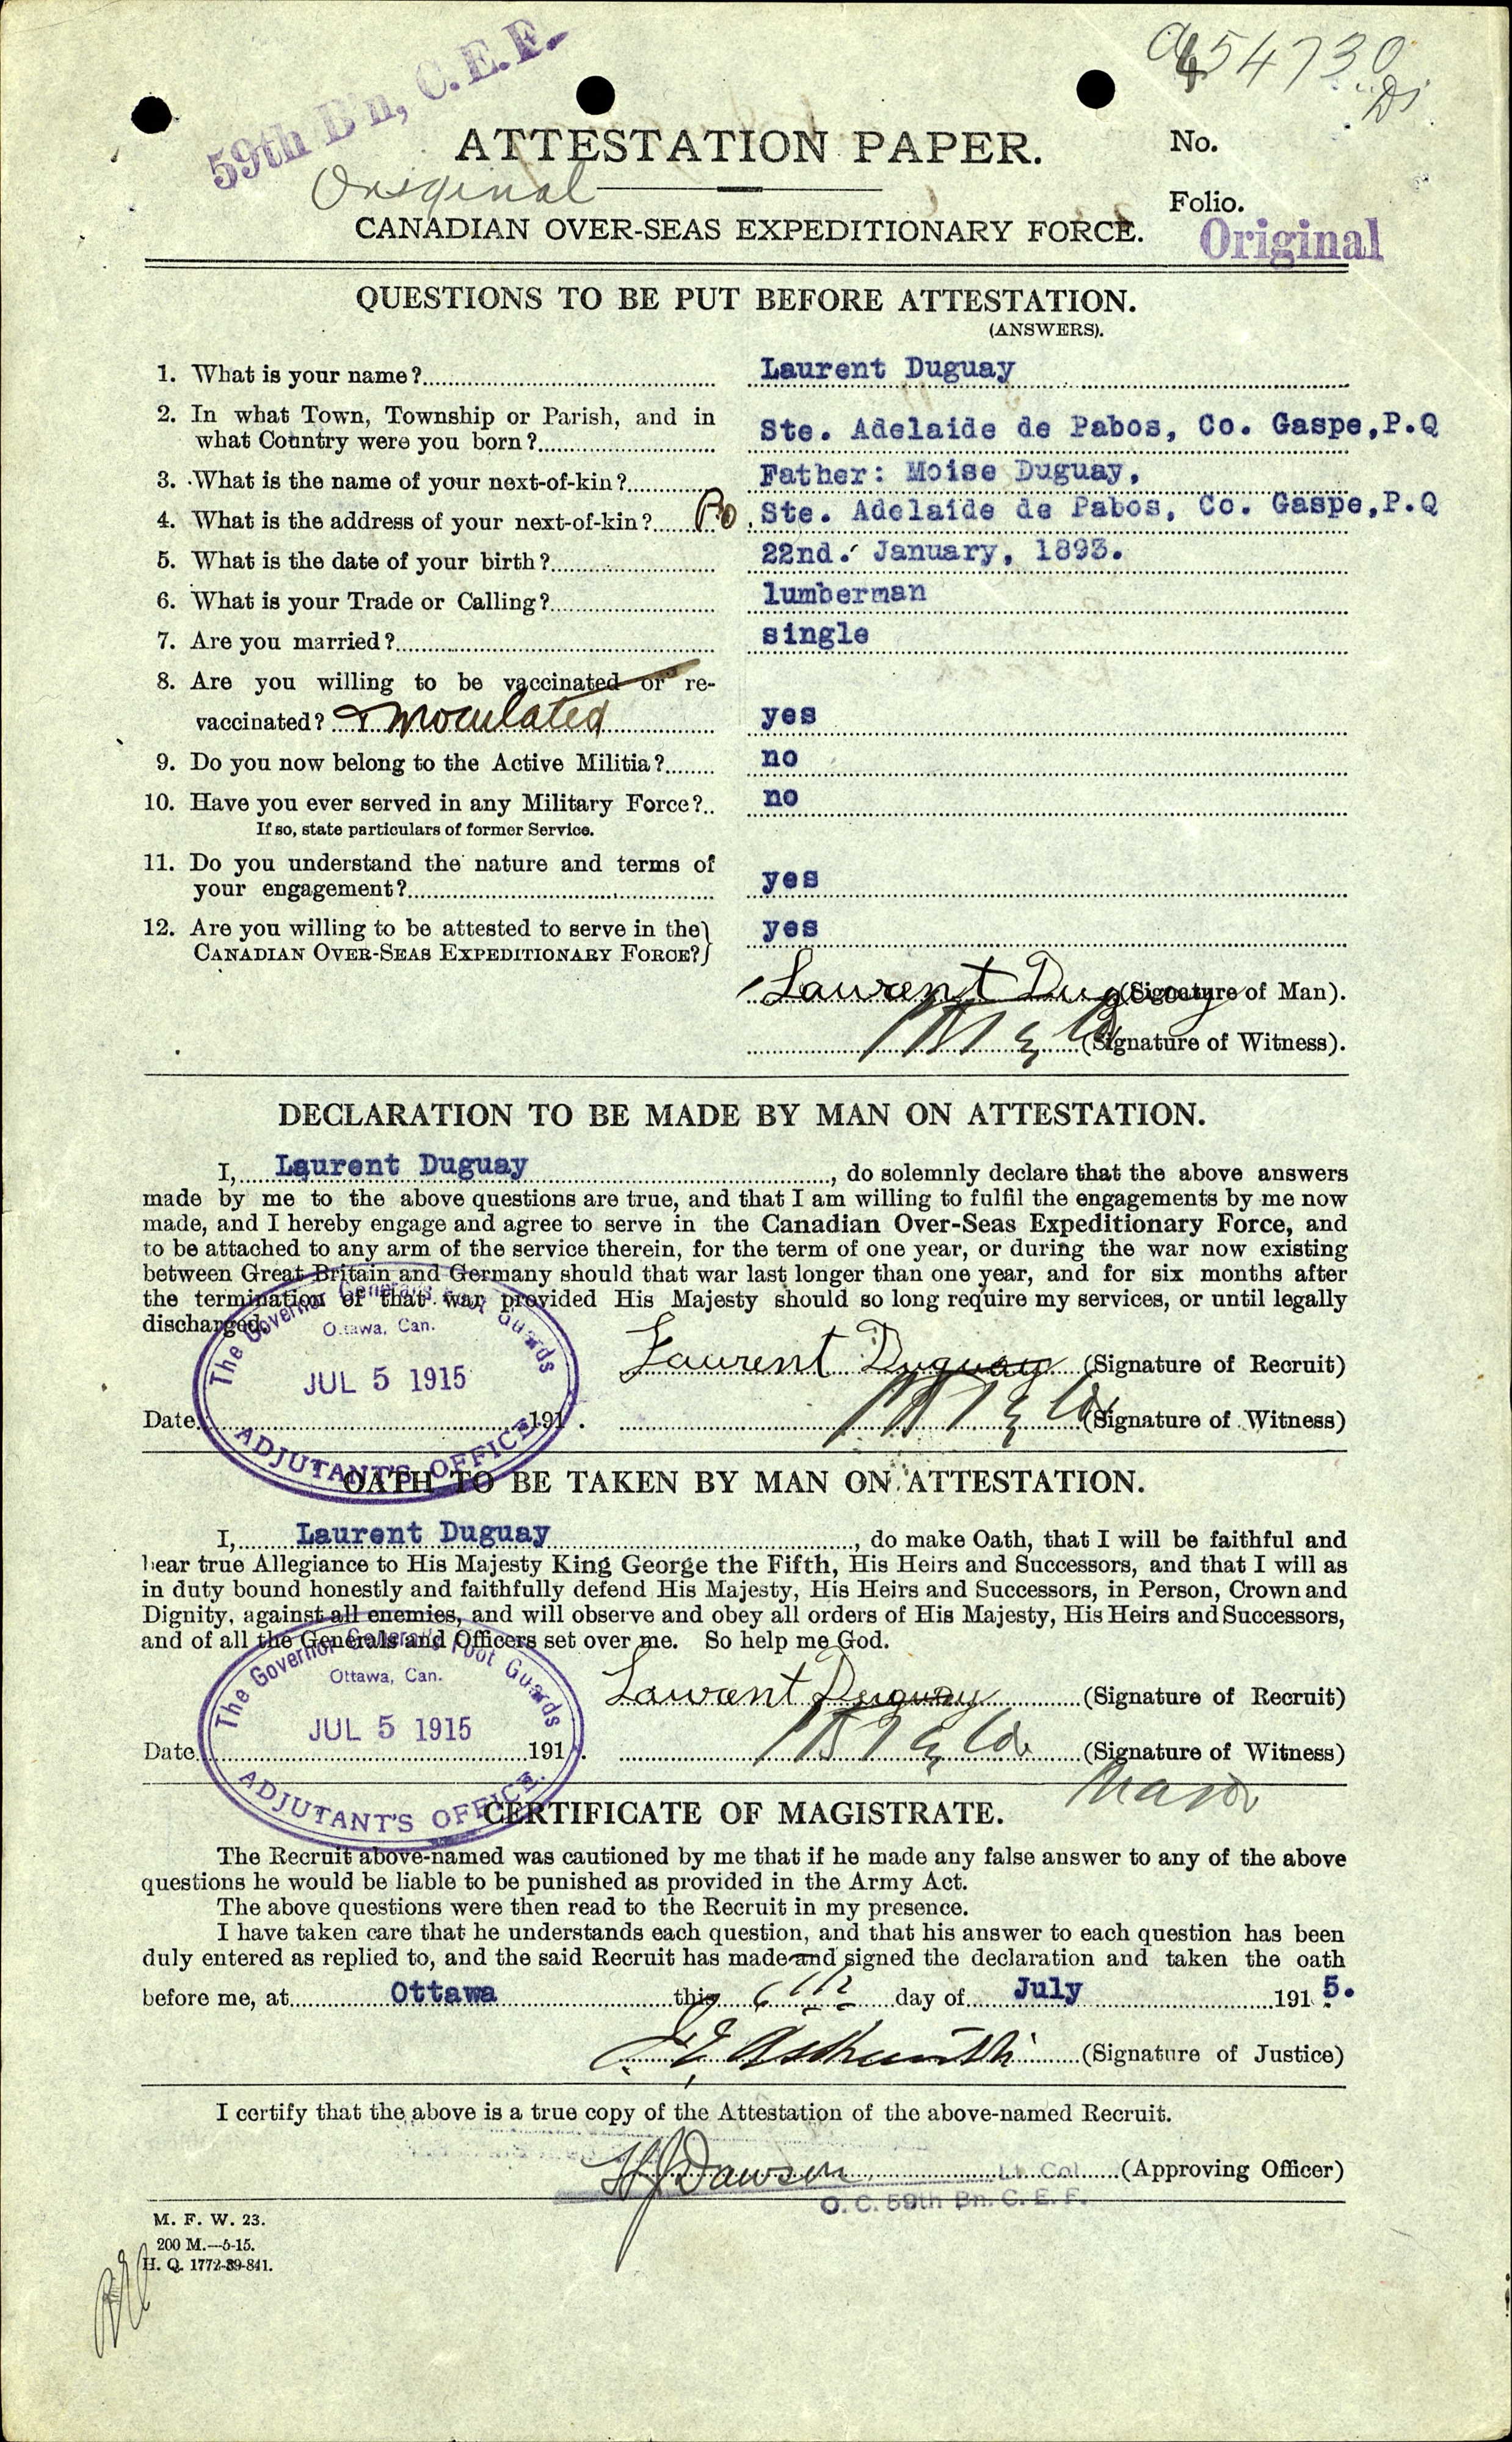 454730
59th B'n, C.E.F.
ATTESTATION PAPER.
No.
Original
Folio.
CANADIAN OVER-SEAS EXPEDITIONARY FORCE.
Original
QUESTIONS TO BE PUT BEFORE ATTESTATION.
(ANSWERS).
1. What is your name? Laurent Duguay
2. In what Town, Township or Parish, and in
what Country were you born? Ste. Adelaide de Pabos, Co. Gaspe, P.Q
3. What is the name of your next-of-kin? Father: Moise Duguay,
4. What is the address of your next-of-kin? Po, Ste. Adelaide de Pabos, Co. Gaspe, P.Q
5. What is the date of your birth? 22nd. January, 1893.
6. What is your Trade or Calling? lumberman
7. Are you married? single
8. Are you willing to be vaccinated or re-
vaccinated? & inoculated yes
9. Do you now belong to the Active Militia? no
10. Have you ever served in any Military Force? no
If so, state particulars of former Service.
11. Do you understand the nature and terms of
your engagement? yes
12. Are you willing to be attested to serve in the yes
CANADIAN OVER-SEAS EXPEDITIONARY FORCE?
Laurent Duguay (Signature of Man).
(Signature of Witness).
DECLARATION TO BE MADE BY MAN ON ATTESTATION.
I, Laurent Duguay, do solemnly declare that the above answers
made by me to the above questions are true, and that I am willing to fulfil the engagements by me now
made, and I hereby engage and agree to serve in the Canadian Over-Seas Expeditionary Force, and
to be attached to any arm of the service therein, for the term of one year, or during the war now existing
between Great Britain and Germany should that war last longer than one year, and for six months after
the termination of that war provided His Majesty should so long require my services, or until legally
discharged.
The Governor General's Foot Guards
Ottawa, Can.
JUL 5 1915
ADJUTANT'S OFFICE.
Laurent Duguay (Signature of Recruit)
Date 191 . (Signature of Witness)
OATH TO BE TAKEN BY MAN ON ATTESTATION.
I, Laurent Duguay, do make Oath, that I will be faithful and
bear true Allegiance to His Majesty King George the Fifth, His Heirs and Successors, and that I will as
in duty bound honestly and faithfully defend His Majesty, His Heirs and Successors, in Person, Crown and
Dignity, against all enemies, and will observe and obey all orders of His Majesty, His Heirs and Successors,
and of all the Generals and Officers set over me. So help me God.
The Governor General's Foot Guards
Ottawa, Can.
JUL 5 1915
ADJUTANT'S OFFICE.
Laurent Duguay (Signature of Recruit)
Date 191 . (Signature of Witness)
Major
CERTIFICATE OF MAGISTRATE.
The Recruit above-named was cautioned by me that if he made any false answer to any of the above
questions he would be liable to be punished as provided in the Army Act.
The above questions were then read to the Recruit in my presence.
I have taken care that he understands each question, and that his answer to each question has been
duly entered as replied to, and the said Recruit has made and signed the declaration and taken the oath
before me, at Ottawa this 6th day of July 1915.
(Signature of Justice)
I certify that the above is a true copy of the Attestation of the above-named Recruit.
HJ Dawson Lt. Col. (Approving Officer)
O. C. 59th Bn. C. E. F.
M. F. W. 23.
200 M.—5-15.
H. Q. 1772-39-841.